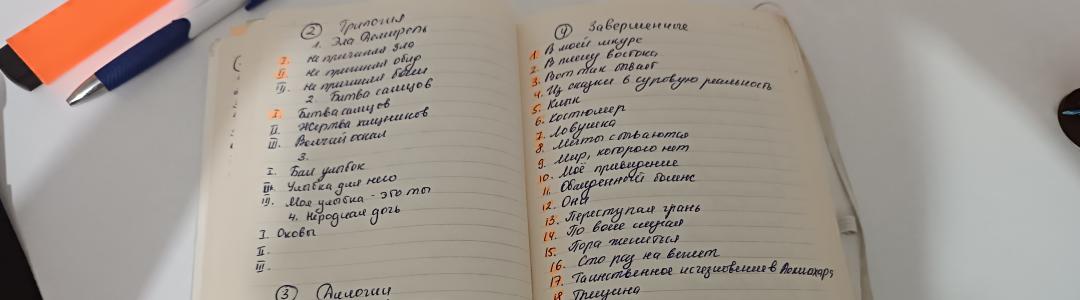 ② Трилогия
1. Эла
I. Не причиняя зла
II. Не причиняя обид
III. Не причиняя боли
2. Битва самцов
I. Битва самцов
II. Жертва хищников
III. Волчий оскал
3.
I. Бал улыбок
II. Улыбка для него
III. Моя улыбка - это ты
4. Неродная дочь
I. Оковы
II.
III.
③ Дилогии
④ Завершенные
1. В моей шкуре
2. В плену востока
3. Вот так бывает
4. Из сказки в суровую реальность
5. Кинк
6. Костюмер
7. Ловушка
8. Мечты сбываются
9. Мир, которого нет
10. Моё привидение
11. Обыденный бизнес
12. Она
13. Переступая грань
14. По воле случая
15. Пора жениться
16. Сто роз на
17. Таинственное исчезновение в
18 Трещина